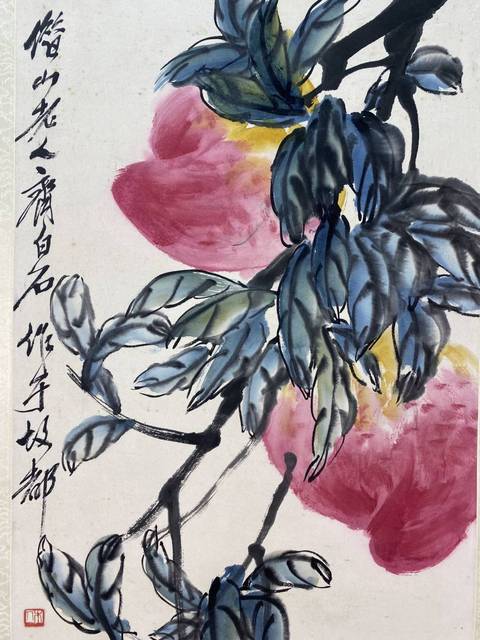 借山老人齊白石作于故都